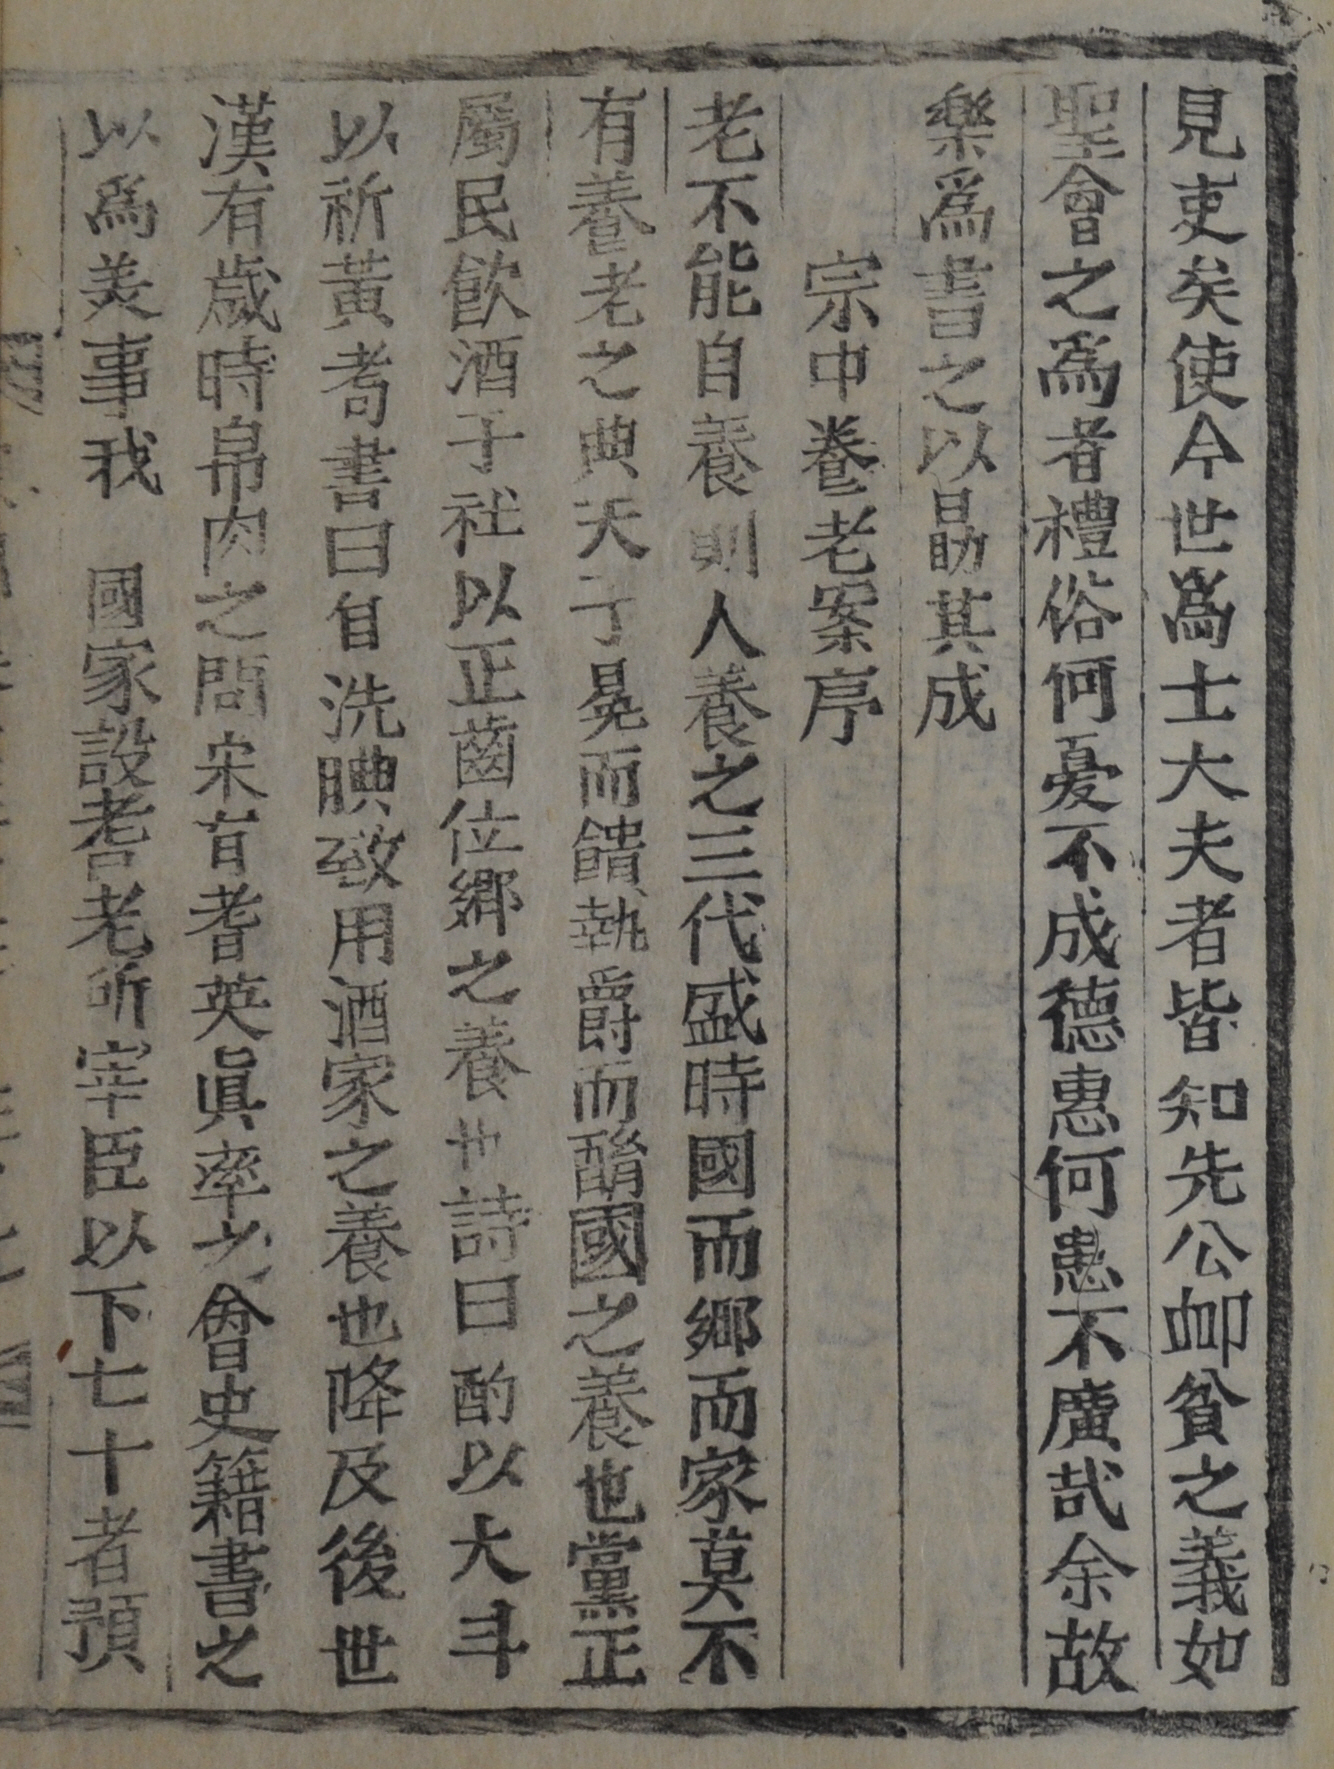 見吏矣使今世爲士大夫者皆知先公卿貧之義如
聖會之爲者禮俗何憂不成德惠何患不廣哉余故
樂爲書之以勗其成
宗中養老案序
老不能自養則人養之三代盛時國而鄕而家莫不
有養老之典天子冕而饋執爵而酳國之養也黨正
屬民飮酒于社以正齒位鄕之養也詩曰酌以大斗
以祈黃耇書曰自洗腆致用酒家之養也降及後世
漢有歲時帛肉之問宋有耆英眞率之會史籍書之
以爲美事我 國家設耆老所宰臣以下七十者預